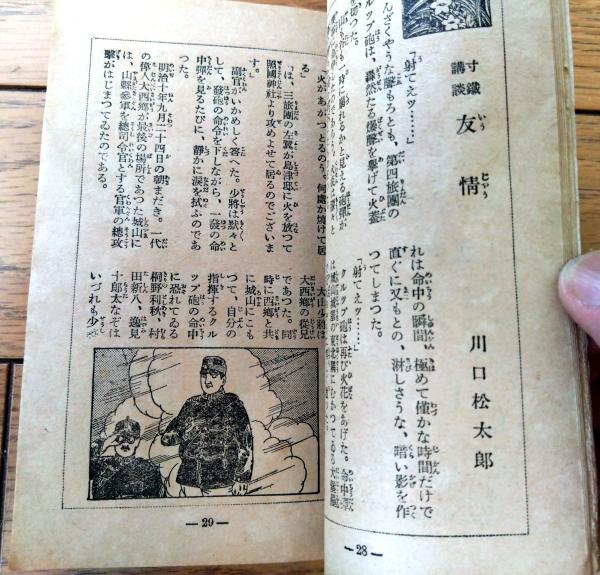 寸鐵
講談
友情
川口松太郎
「射てえッ……」
んざくやうな聲もろとも、第四旅團の
クルップ砲は、轟然たる爆聲を擧げて火蓋
を切つた。
れは命中の瞬間、極めて僅かな時間だけで
直ぐに又もとの、淋しさうな、暗い影を作
つてしまつた。
「射てえッ……」
クルップ砲は再び火花をあげた。命中彈
—28—
「火があがつとるのう。何處が焼けて居
る」
「は、三旅團の左翼が島津邸に火を放つて
照國神社より攻めよせて居るのでございま
す。」
副官がいかめしく答へた。少將は默々と
して、發砲の命令を下しながら、一發の命
中彈を見るたびに、靜かに涙を拭ふのであ
つた。
明治十年九月二十四日の朝まだき。一代
の偉人大西郷が最後の場所であつた城山に
は、山縣將軍を總司令官とする官軍の總攻
擊がはじまつてゐたのである。
大山少將は
大西郷の從兄
であつた。同
時に西郷と共
に城山にこも
つて、自分の
指揮するクル
ップ砲の命中
に恐れてゐる
桐野利秋、村
田新八、逸見
十郎太なぞは
いづれも少
—29—